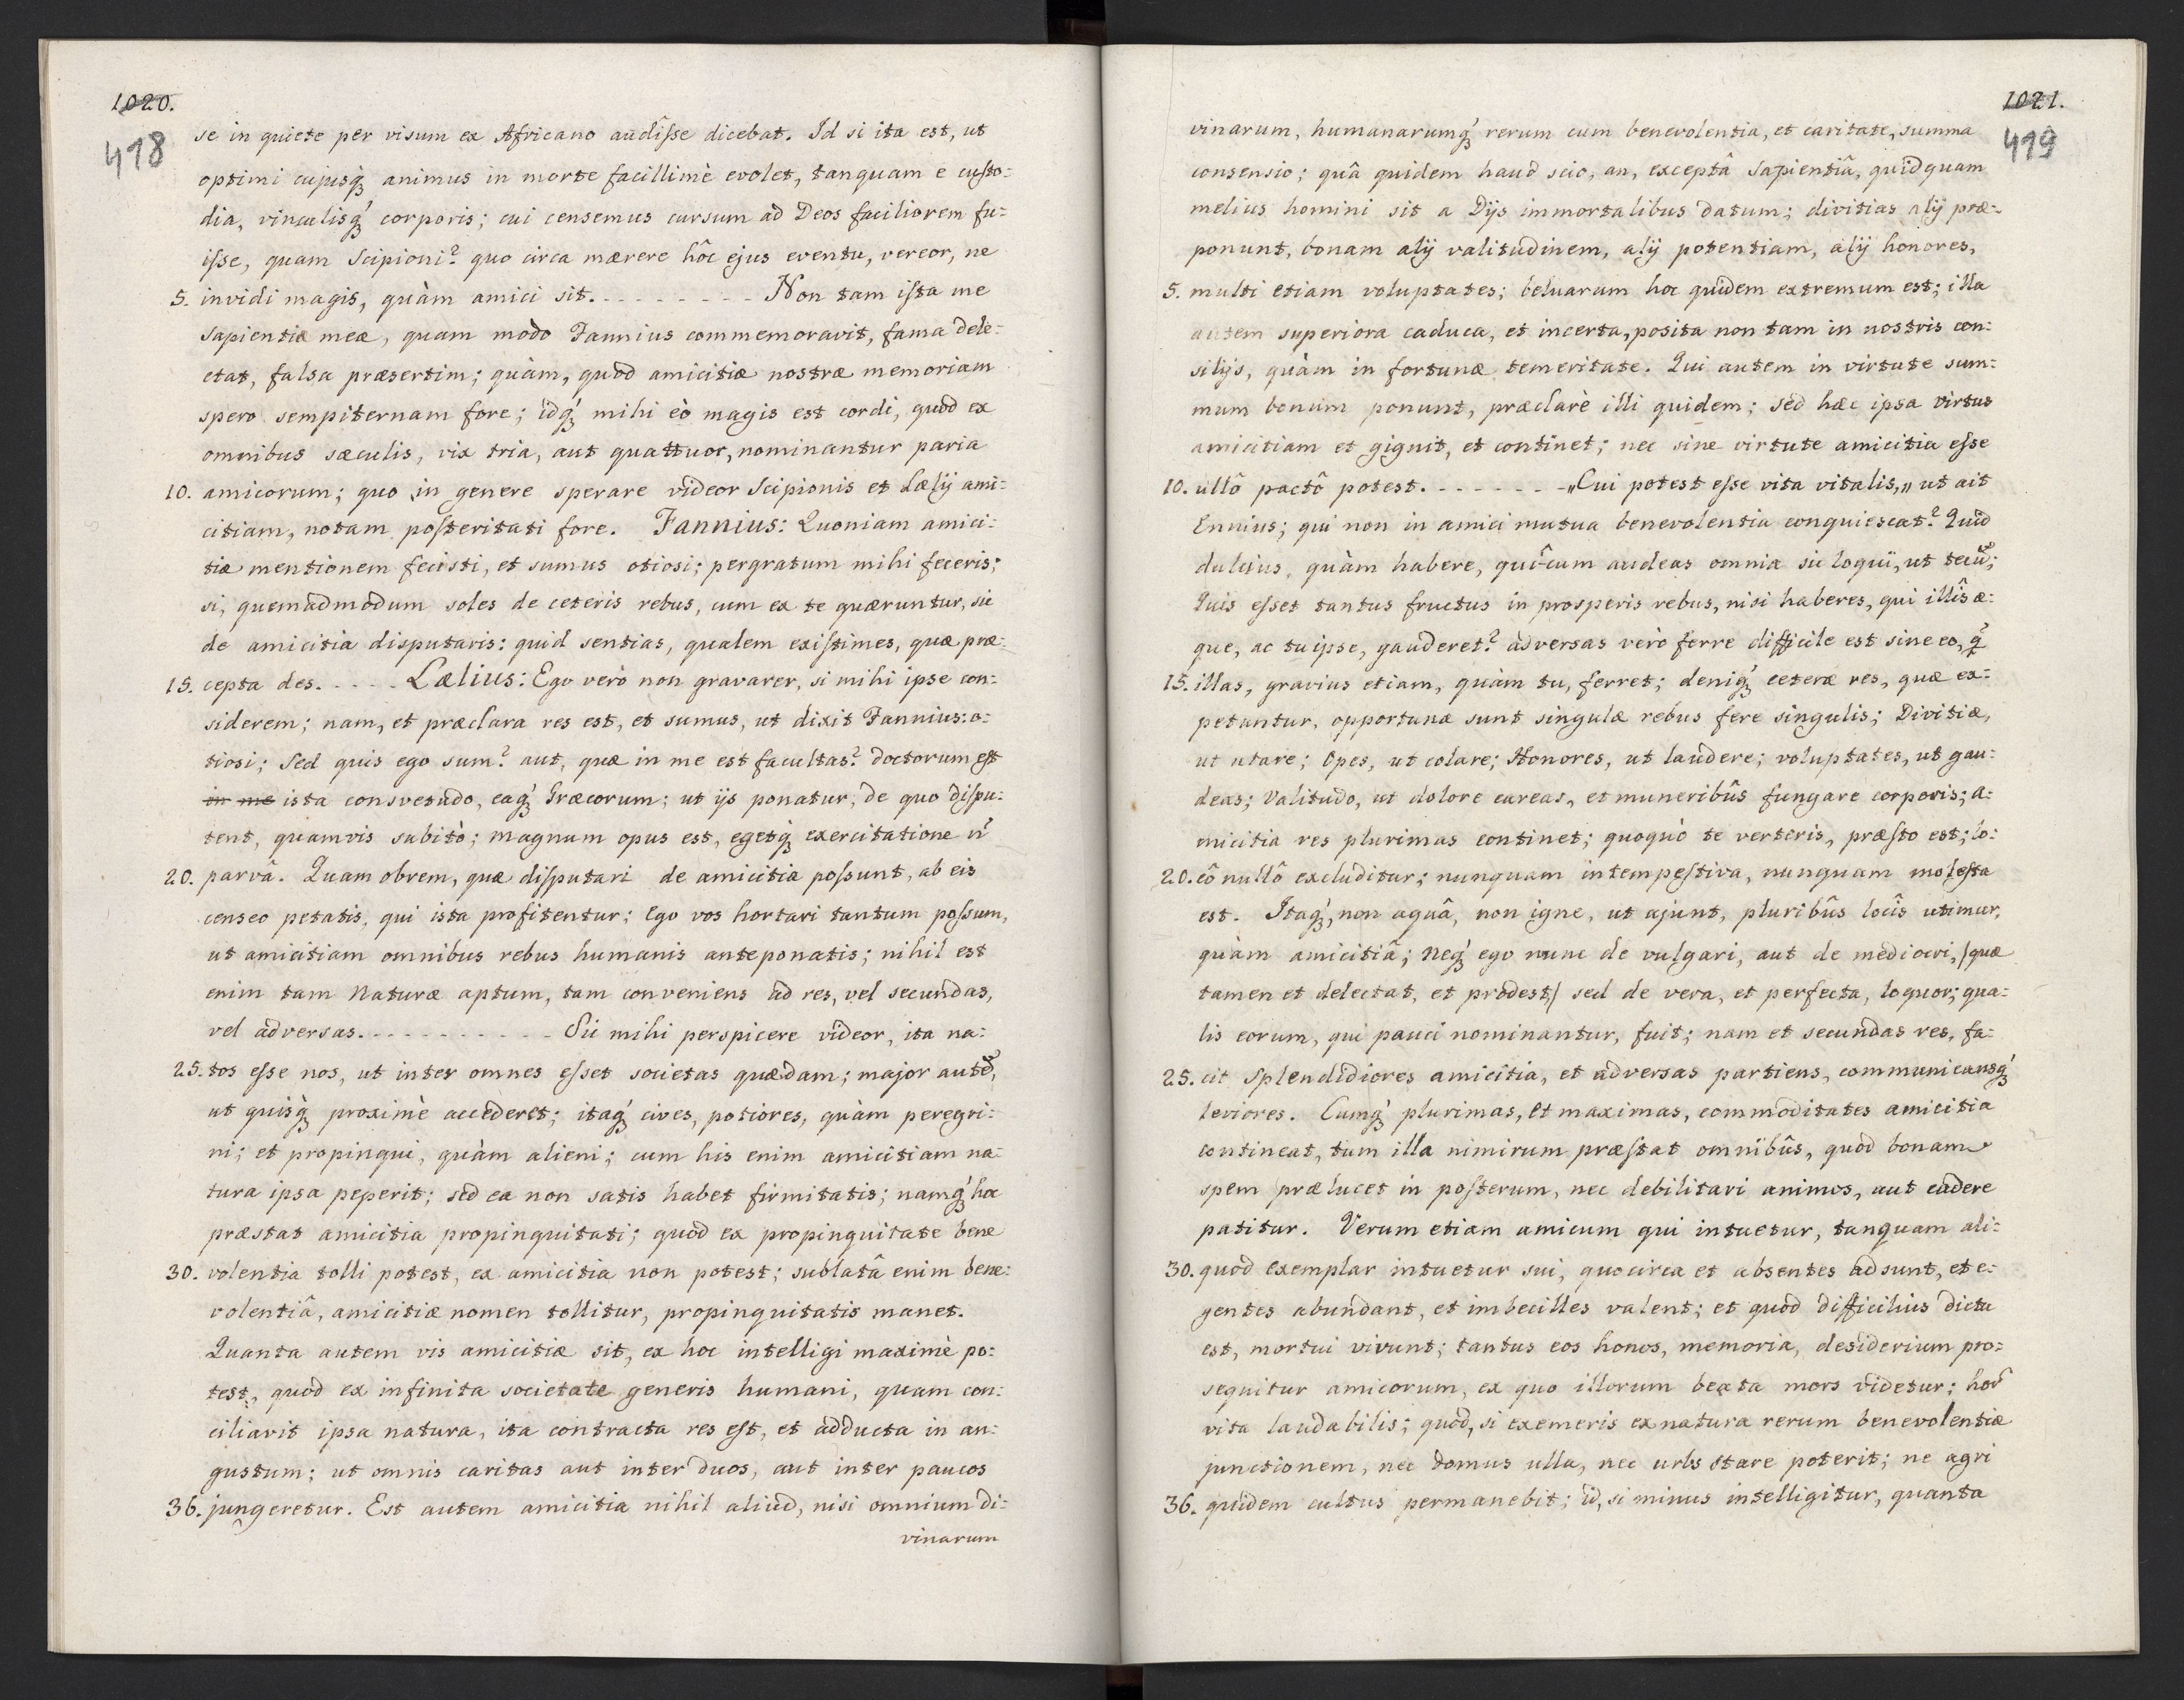 1020.
418
se in quiete per visum ex Africano audîsse dicebat. Id si ita est, ut
optimi cujusq́ꝫ animus in morte facillimè evolet, tanquam e custo:
dia, vinculisq́ꝫ corporis; cui censemus cursum ad Deos faciliorem fu:
isse, quam Scipioni? quo circa mærere hôc ejus eventu, vereor, ne
5. invidi magis, quàm amici sit. - - - - - - - - - Non tam ista me
sapientiæ meæ, quam modo Fannius commemoravit, fama dele:
ctat, falsa præsertim; quàm, quòd amicitiæ nostræ memoriam
spero sempiternam fore; idq́ꝫ mihi eò magis est cordi, quòd ex
omnibus sæculis, vix tria, aut quattuor, nominantur paria
10. amicorum; quo in genere sperare videor Scipionis et Lælÿ ami:
citiam, notam posteritati fore. Fannius: Quoniam amici:
tiæ mentionem fecisti, et sumus otiosi; pergratum mihi feceris;
si, quemadmodum soles de ceteris rebus, cum ex te quæruntur, sic
de amicitia disputaris: quid sentias, qualem existimes, quæ præ:
15. cepta des. - - - - Lælius: Ego verò non gravarer, si mihi ipse con:
siderem; nam, et præclara res est, et sumus, ut dixit Fannius: o:
tiosi; Sed quis ego sum? aut, quæ in me est facultas? doctorum est
in me ista consvetudo, eaq́ꝫ Græcorum; ut ijs ponatur, de quo dispu:
tent, quamvis subitò; magnum opus est, egetq́ꝫ exercitatione n̂
20. parvâ. Quam obrem, quæ disputari de amicitia possunt, ab eis
censeo petatis, qui ista profitentur; Ego vos hortari tantum possum,
ut amicitiam omnibus rebus humanis anteponatis; nihil est
enim tam Naturæ aptum, tam conveniens ad res, vel secundas,
vel adversas. - - - - - - - - - - - Sic mihi perspicere videor, ita na:
25. tos esse nos, ut inter omnes esset societas quædam; major autẽ,
ut quisq́ꝫ proximè accederet; itaq́ꝫ cives, potiores, quàm peregri:
ni; et propinqui, quàm alieni; cum his enim amicitiam na:
tura ipsa peperit; sed ea non satis habet firmitatis; namq́ꝫ hoc
præstat amicitia propinquitati; quòd ex propinquitate bene
30. volentia tolli potest, ex amicitia non potest; sublatâ enim bene:
volentiâ, amicitiæ nomen tollitur, propinquitatis manet.
Quanta autem vis amicitiæ sit, ex hoc intelligi maximè po:
test, quòd ex infinita societate generis humani, quam con:
ciliavit ipsa natura, ita contracta res est, et adducta in an:
gustum; ut omnis caritas aut inter duos, aut inter paucos
36. jungeretur. Est autem amicitia nihil aliud, nisi omnium di:
vinarum
1021.
419
vinarum, humanarumq́ꝫ rerum cum benevolentia, et caritate, summa
consensio; quâ quidem haud scio, an, exceptâ Sapientiâ, quidquam
melius homini sit a Dÿs immortalibus datum; divitias alÿ præ:
ponunt, bonam alÿ valitudinem, alÿ potentiam, alÿ honores,
5. multi etiam voluptates; beluarum hoc quidem extremum est; illa
autem superiora caduca, et incerta, posita non tam in nostris con:
silÿs, quàm in fortunæ temeritate. Qui autem in virtute sum:
mum bonum ponunt, præclarè illi quidem; sed hæc ipsa virtus
amicitiam et gignit, et continet; nec sine virtute amicitia esse
10. ullô pactô potest. - - - - - - - „Cui potest esse vita vitalis,„ ut ait
Ennius; qui non in amici mutua benevolentia conquiescat? Quid
dulcius, quàm habere, quî-cum audeas omnia sic loqui, ut tecũ;
Quis esset tantus fructus in prosperis rebus, nisi haberes, qui illîs æ:
que, ac tu ipse, gauderet? adversas verò ferre difficile est sine eo, q̃
15. illas, gravius etiam, quàm tu, ferret; deniq́ꝫ ceteræ res, quæ ex:
petantur, opportunæ sunt singulæ rebus fere singulis; Divitiæ,
ut utare; Opes, ut colare; Honores, ut laudere; voluptates, ut gau:
deas; Valitudo, ut dolore careas, et muneribûs fungare corporis; a:
micitia res plurimas continet; quoquò te verteris, præsto est; lo:
20. cô nullô excluditur; nunquam intempestiva, nunquam molesta
est. Itaq́ꝫ, non aquâ, non igne, ut ajunt, pluribûs locîs utimur,
quàm amicitiâ; neq́ꝫ ego nunc de vulgari, aut de mediocri, /quæ
tamen et delectat, et prodest/ sed de vera, et perfecta, loquor; qua:
lis eorum, qui pauci nominantur, fuit; nam et secundas res, fa:
25. cit splendidiores amicitia, et adversas partiens, communicansq́ꝫ
leviores. Cumq́ꝫ plurimas, et maximas, commoditates amicitia
contineat, tum illa nimirum præstat omnibûs, quòd bonam
spem prælucet in posterum, nec debilitari animos, aut cadere
patitur. Verum etiam amicum qui intuetur, tanquam ali:
30. quod exemplar intuetur sui, quocirca et absentes adsunt, et e:
gentes abundant, et imbecilles valent; et quod difficilius dictu
est, mortui vivunt; tantus eos honos, memoria, desiderium pro:
sequitur amicorum, ex quo illorum beata mors videtur; horũ
vita laudabilis; quòd, si exemeris ex natura rerum benevolentiæ
junctionem, nec domus ulla, nec urbs stare poterit; ne agri
36. quidem cultus permanebit; id, si minus intelligitur, quanta